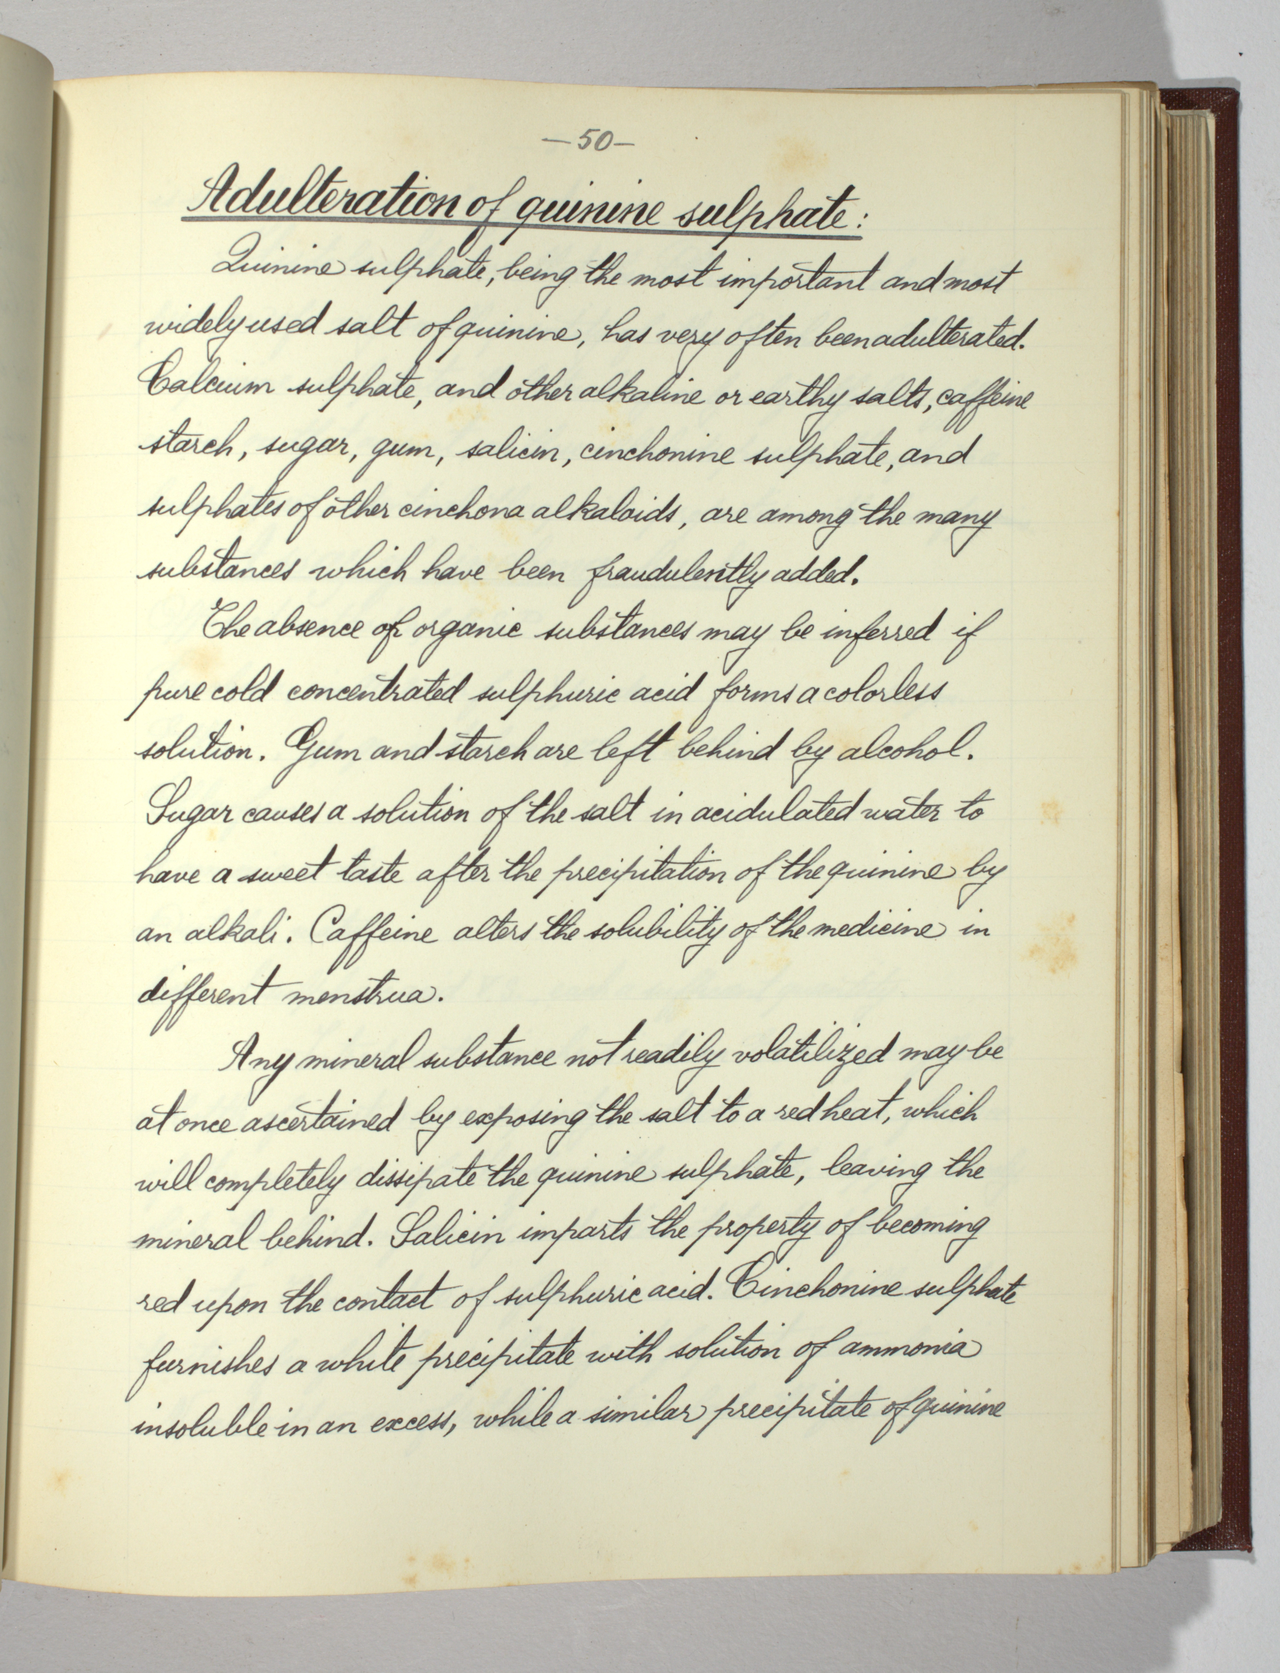 —50—
Adulteration of quinine sulphate:
Quinine sulphate, being the most important and most
widely used salt of quinine, has very often been adulterated.
Calcium sulphate, and other alkaline or earthy salts, caffeine
starch, sugar, gum, salicin, cinchonine sulphate, and
sulphates of other cinchona alkaloids, are among the many
substances which have been fraudulently added.
The absence of organic substances may be inferred if
pure cold concentrated sulphuric acid forms a colorless
solution. Gum and starch are left behind by alcohol.
Sugar causes a solution of the salt in acidulated water to
have a sweet taste after the precipitation of the quinine by
an alkali. Caffeine alters the solubility of the medicine in
different menstrua.
Any mineral substance not readily volatilized may be
at once ascertained by exposing the salt to a red heat, which
will completely dissipate the quinine sulphate, leaving the
mineral behind. Salicin imparts the property of becoming
red upon the contact of sulphuric acid. Cinchonine sulphate
furnishes a white precipitate with solution of ammonia
insoluble in an excess, while a similar precipitate of quinine